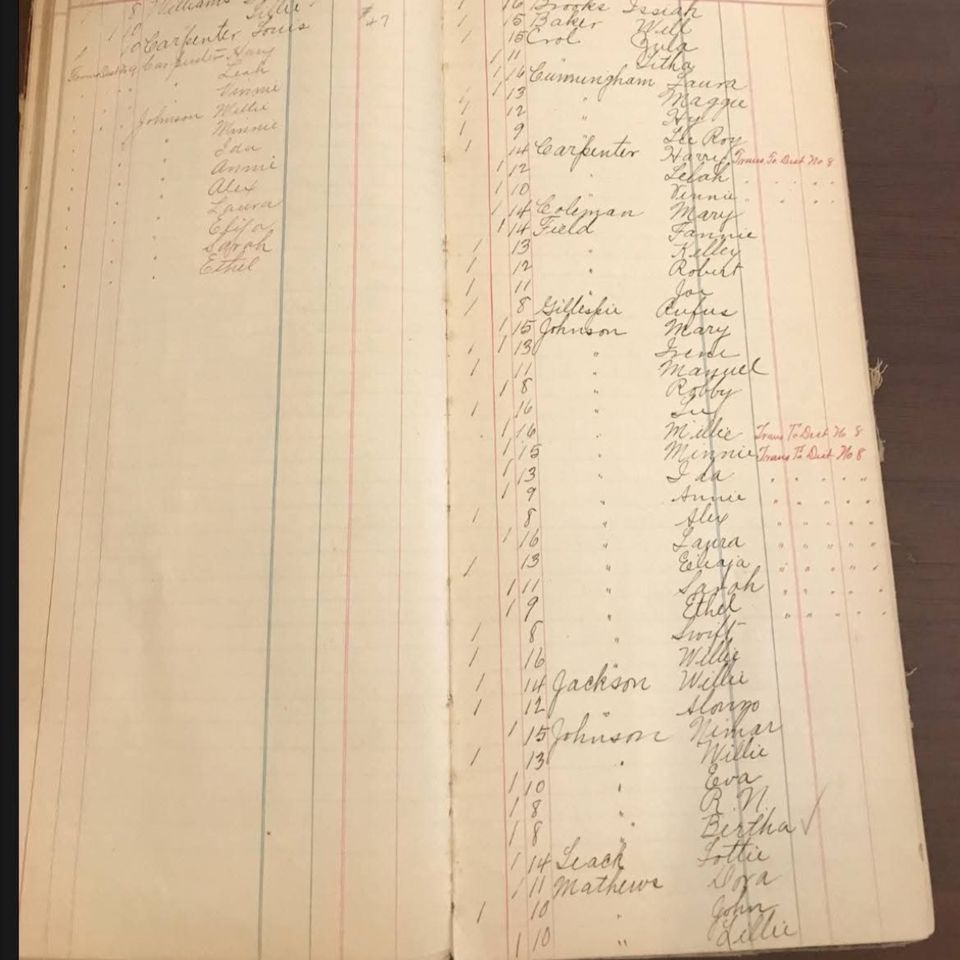 1 8 Williams
1 10 Lillie
1 10 Carpenter Louis
#47
Carpenter Harry
" Leah
" Vinnie
Johnson Willie
" Minnie
" Ida
" Annie
" Alex
" Laura
" Elija
" Sarah
" Ethel
1 16 Brooks Issiah
1 15 Baker Will
1 15 Crol Eula
1 11 " Litha
1 16 Cunningham Laura
1 13 " Maggie
1 12 " Hy
1 9 " Lee Roy
1 14 Carpenter Harry Trans. To Dist No 8
1 12 " Lelah " " " "
1 10 " Vinnie " " " "
1 14 Coleman Mary
1 14 Field Fannie
1 13 " Kelley
1 12 " Robert
1 11 " Joe
1 8 Gillespie Rufus
1 15 Johnson Mary
1 13 " Irene
1 11 " Manuel
1 8 " Robby
1 16 "
1 16 " Millie Trans To Dist No 8
1 15 " Minnie Trans To Dist No 8
1 13 " Ida " " " " "
1 9 " Annie " " " " "
1 8 " Alex
1 16 " Laura " " " " "
1 13 " Eliaja " " " " "
1 11 " Sarah " " " " "
1 9 " Ethel " " " " "
1 8 " Swift
1 16 " Willie
1 14 Jackson Willie
1 12 " Alonzo
1 15 Johnson Nimar
1 13 " Willie
1 10 " Eva
1 8 " R. N.
1 8 " Birtha ✓
1 14 Leach Lottie
1 11 Mathews Dora
1 10 " John
1 10 " Lillie